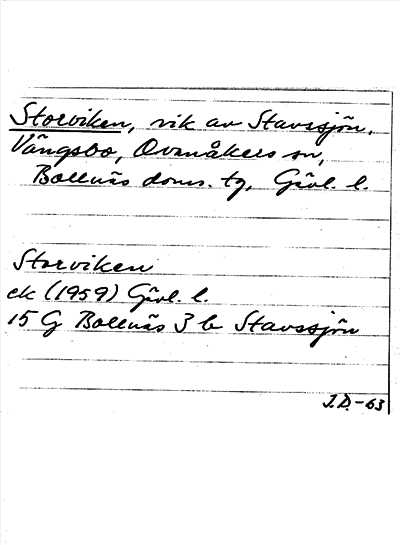 Storviken, vik av Stavssjön,
Vängsbo, Ovanåkers sn,
Bollnäs doms. tg, Gävl. l.
Storviken
ek (1959) Gävl. l.
15 G Bollnäs 3 b Stavssjön
J.D.-63